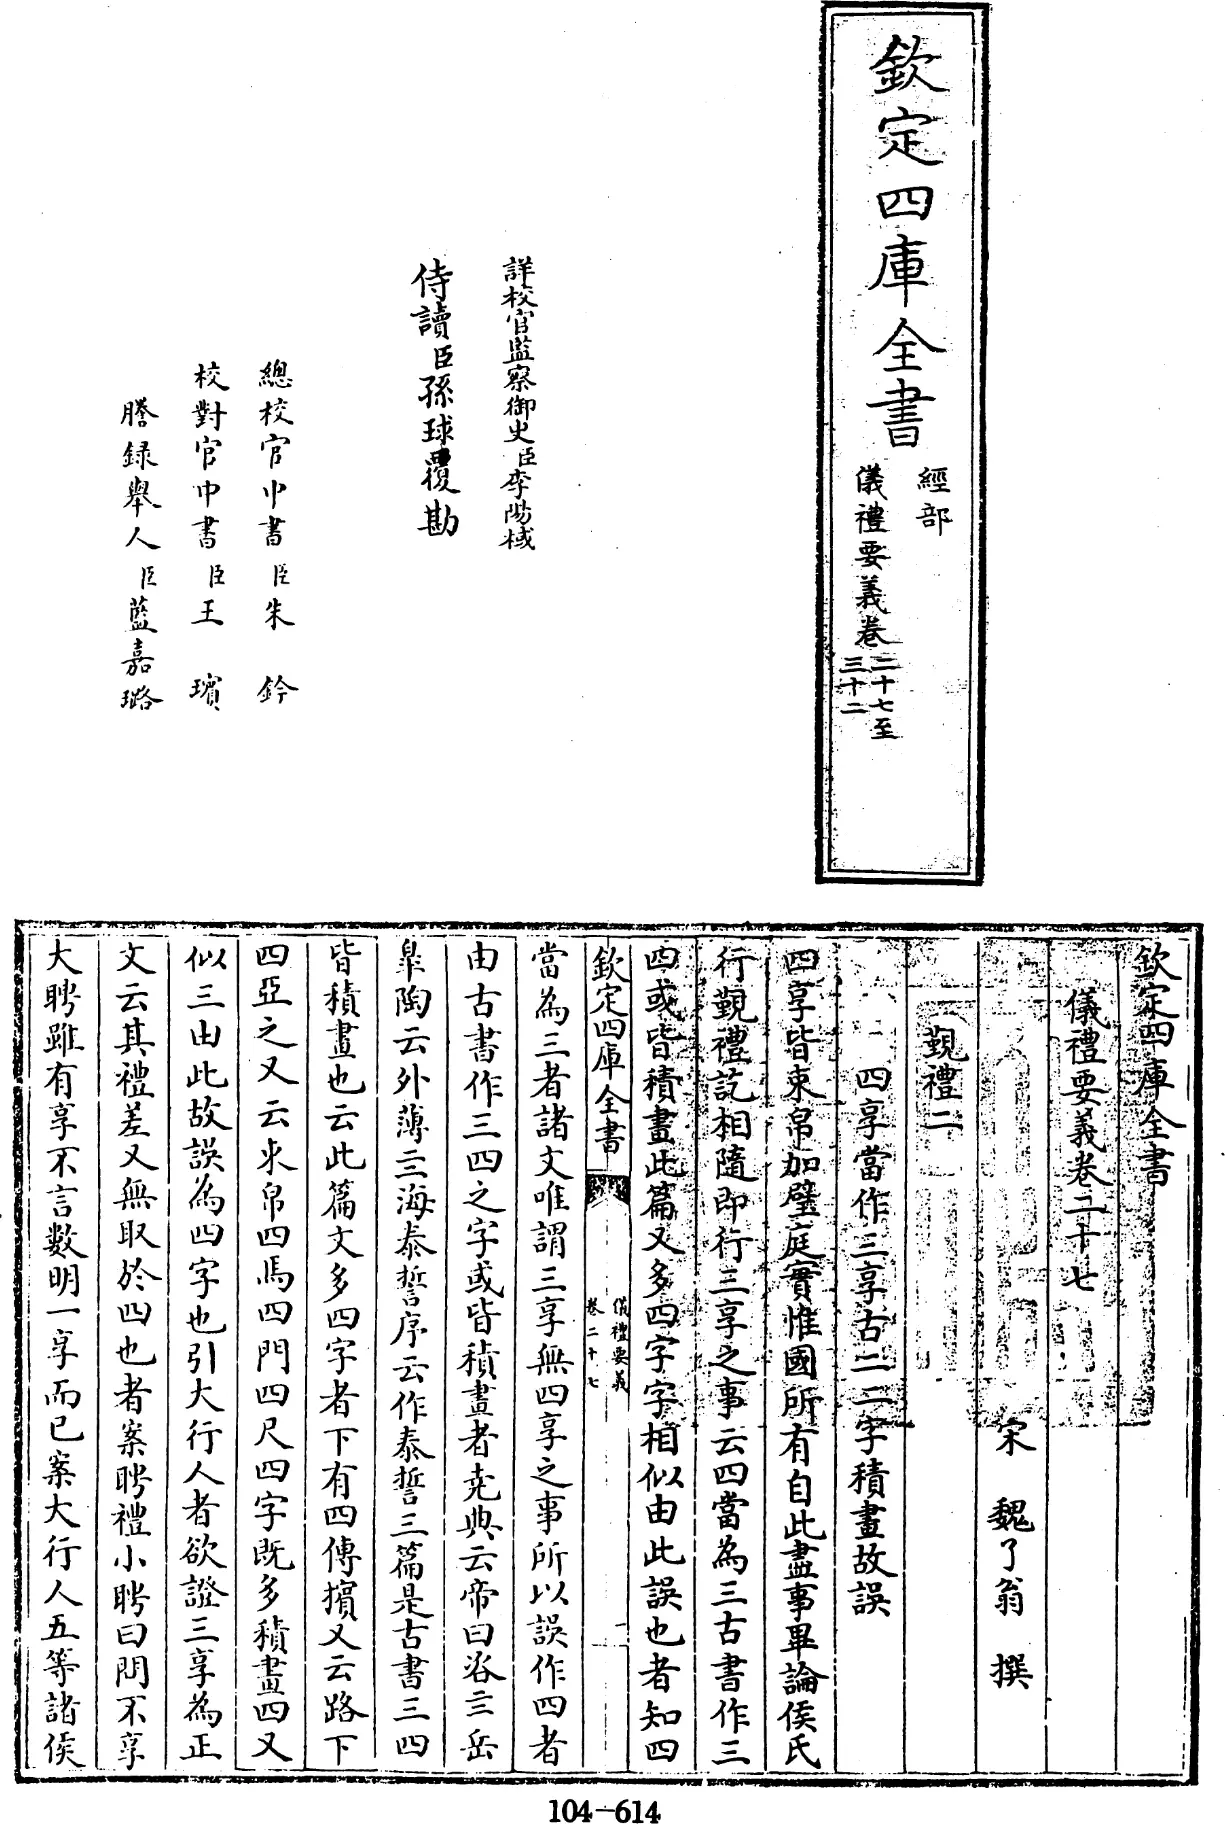 欽定四庫全書
經部
儀禮要義卷二十七至三十二
詳校官監察御史臣李陽棫
侍讀臣孫球覆勘
總校官中書臣朱鈐
校對官中書臣王璸
謄録舉人臣藍嘉璐
欽定四庫全書
儀禮要義卷二十七
宋 魏了翁 撰
覲禮二
四享當作三享古二二字積畫故誤
四享皆束帛加璧庭實惟國所有自此盡事畢論侯氏
行覲禮訖相隨即行三享之事云四當為三古書作三
四或皆積畫此篇又多四字字相似由此誤也者知四
欽定四庫全書
儀禮要義
卷二十七
一
當為三者諸文唯謂三享無四享之事所以誤作四者
由古書作三四之字或皆積畫者堯典云帝曰咨亖岳
臯陶云外薄亖海泰誓序云作泰誓三篇是古書三四
皆積畫也云此篇文多四字者下有四傳擯又云路下
四亞之又云束帛四馬四門四尺四字既多積畫四又
似三由此故誤為四字也引大行人者欲證三享為正
文云其禮差又無取於四也者案聘禮小聘曰問不享
大聘雖有享不言數明一享而已案大行人五等諸侯
104-614